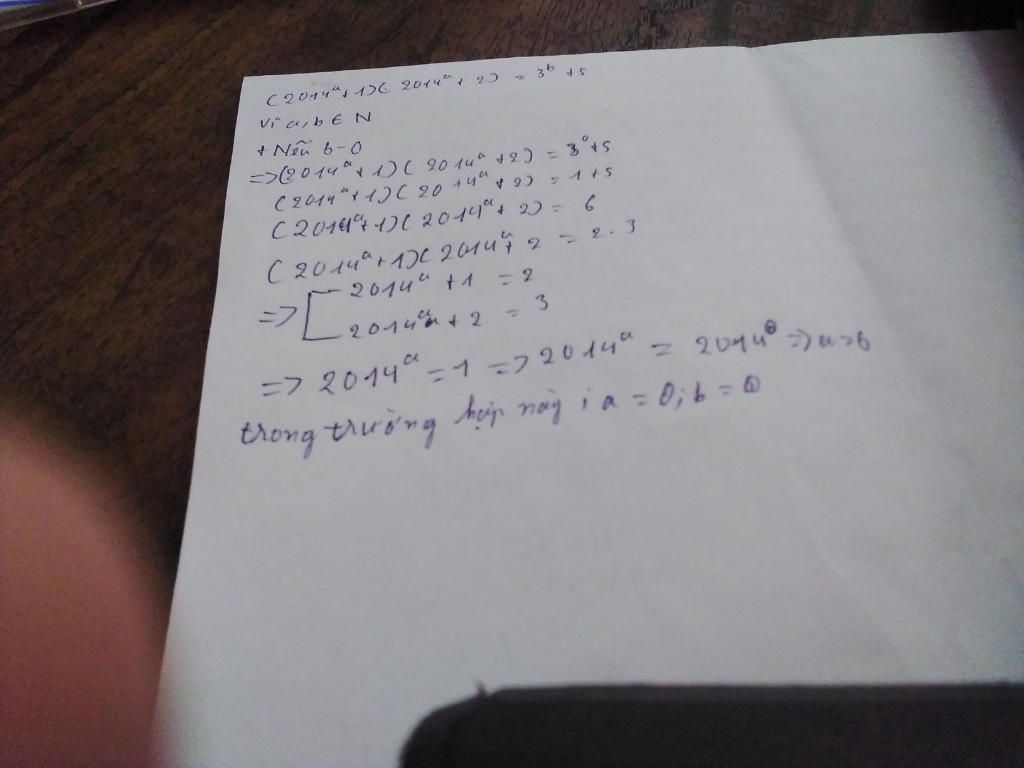 (2014ᵃ+1)(2014ᵃ+2) = 3ᵇ+5
Vì a,b ∈ N
+ Nếu b-0
=>(2014ᵃ+1)(2014ᵃ+2) = 3⁰+5
(2014ᵃ+1)(2014ᵃ+2) = 1+5
(2014ᵃ+1)(2014ᵃ+2) = 6
(2014ᵃ+1)(2014ᵃ+2 = 2.3
=> [ 2014ᵃ+1 = 2
2014ᵃ+2 = 3
=> 2014ᵃ = 1 => 2014ᵃ = 2014⁰ =>
trong trường hợp này ; a = 0; b = 0